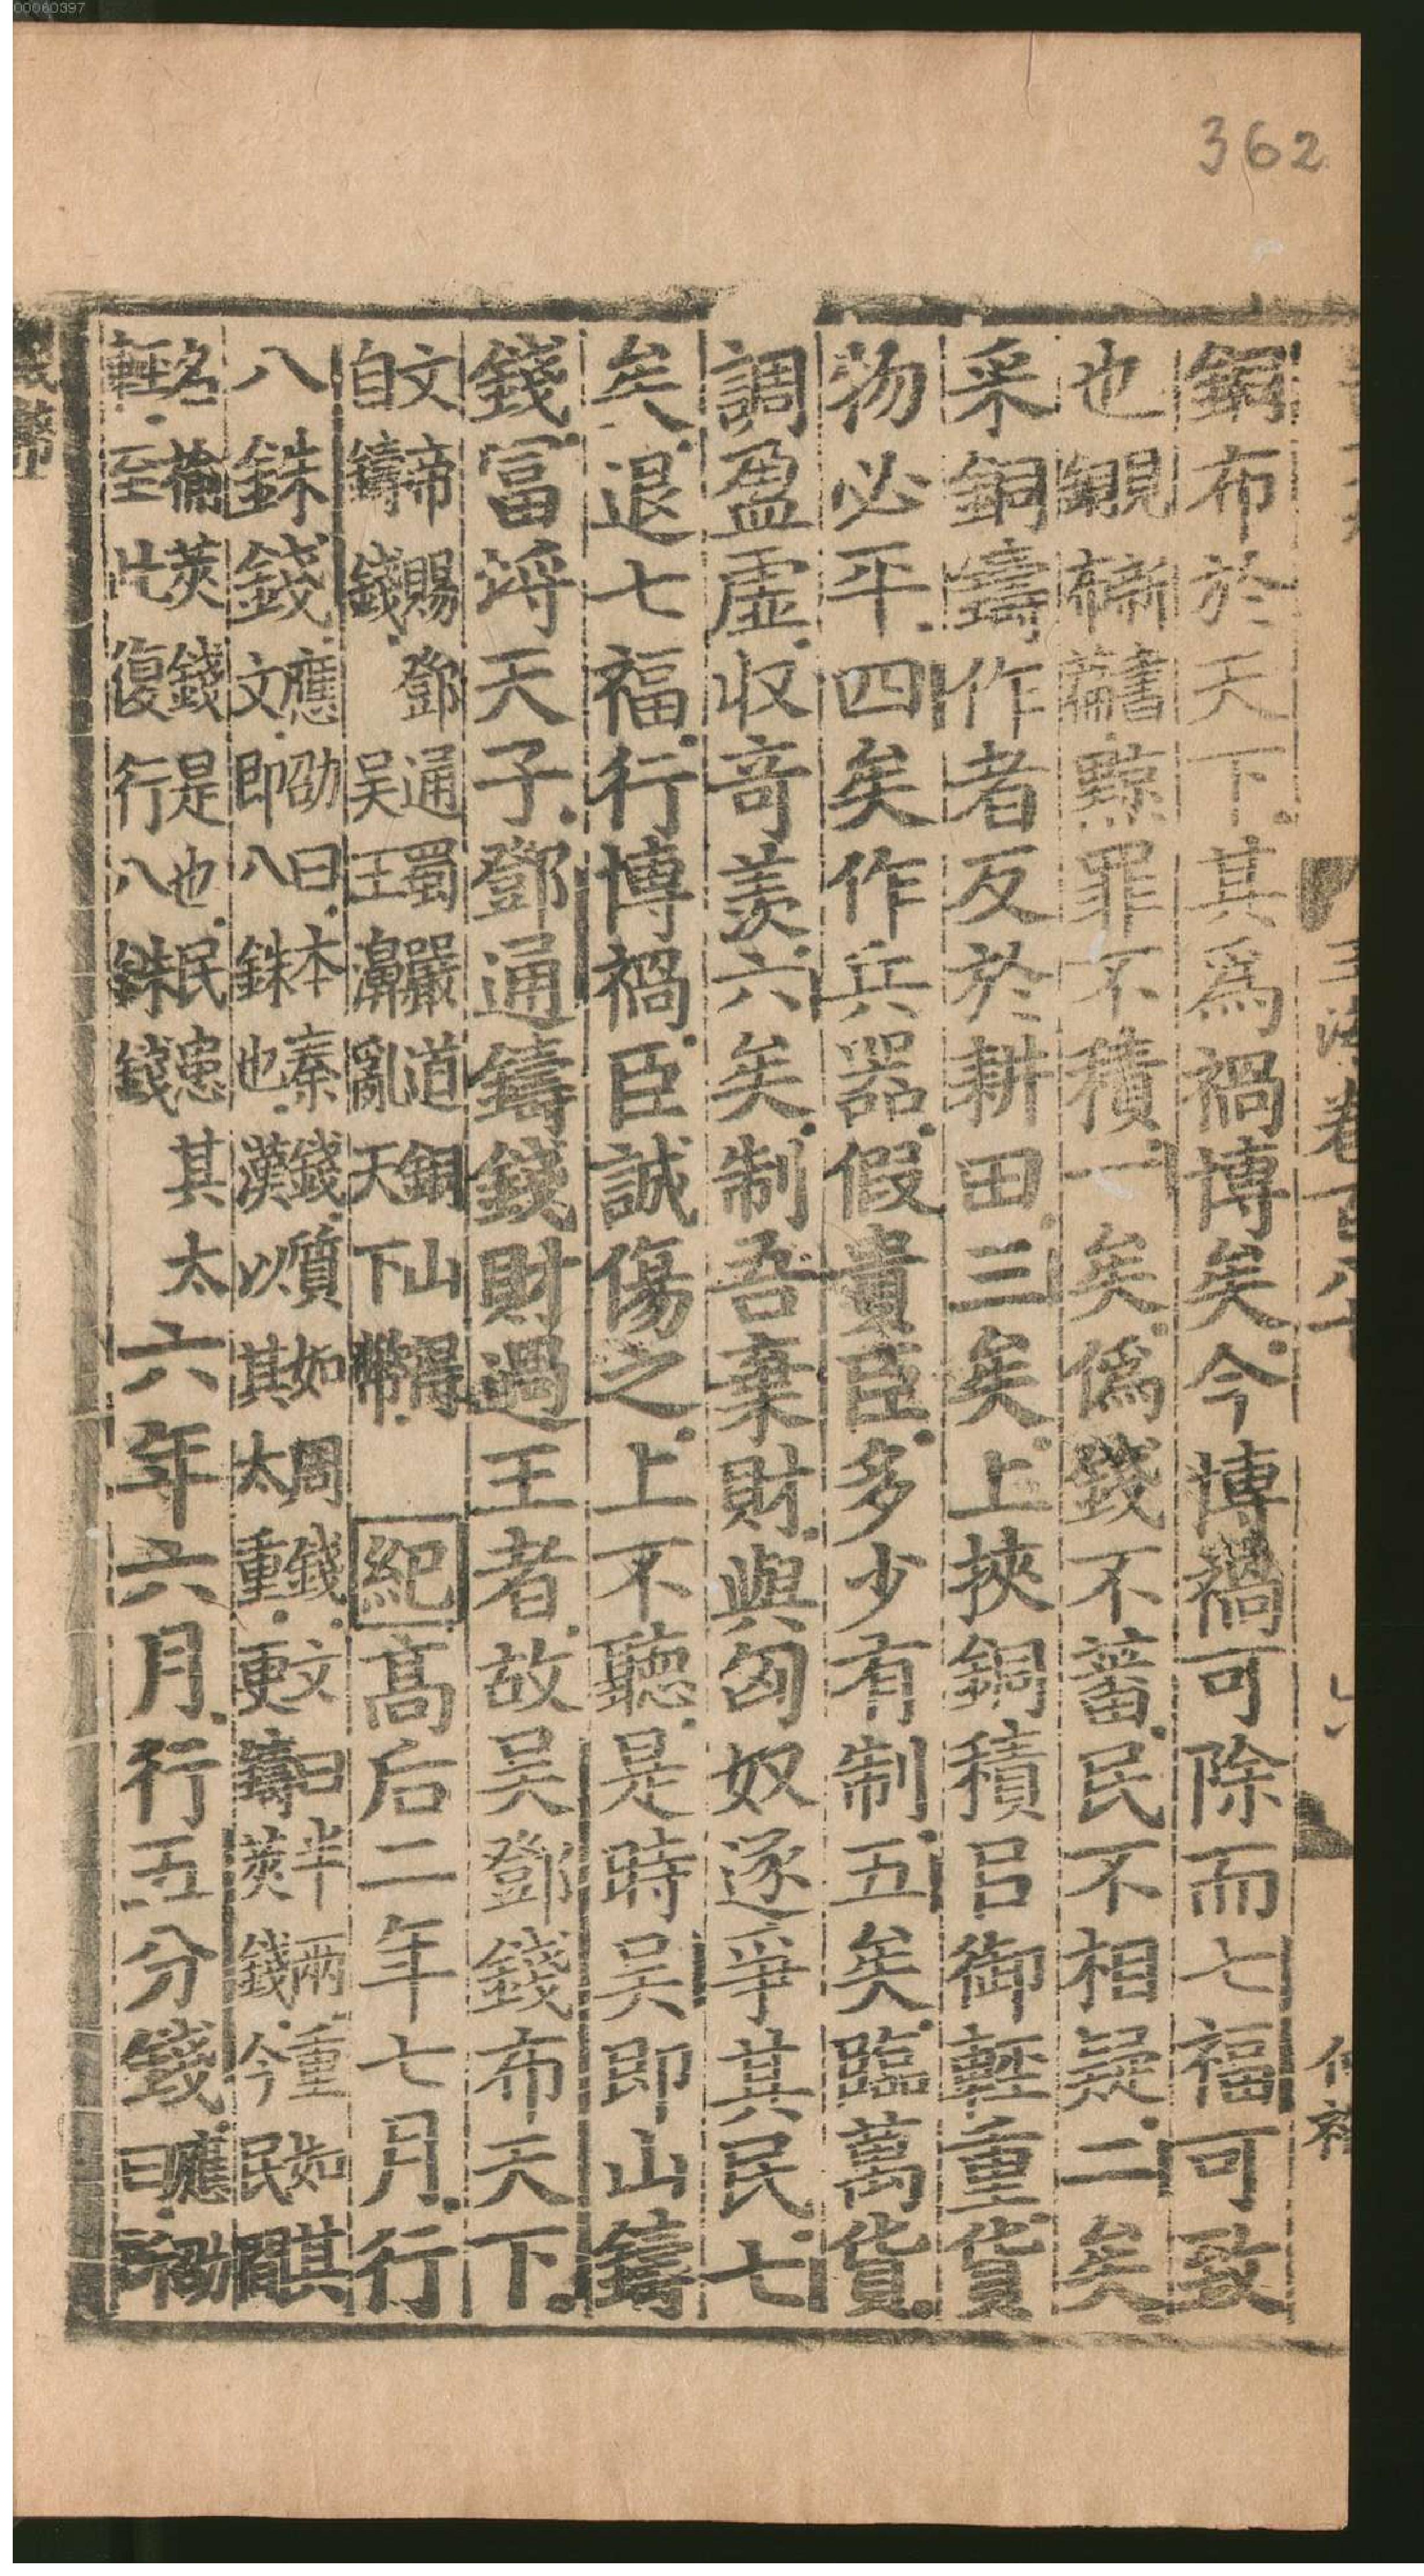 00060397
362
玉海卷百八十
銅布於天下其爲禍博矣今博禍可除而七福可致
也見新書銅布篇黥罪不積一矣僞錢不蕃民不相疑二矣
采銅鑄作者反於耕田三矣上挾銅積㠯御輕重貨
物必平四矣作兵器假貴臣多少有制五矣臨萬貨
調盈虛収竒羨六矣制吾棄財與匈奴逐爭其民七
矣退七福行博禍臣誠傷之上不聽是時吳即山鑄
錢冨埒天子鄧通鑄錢財過王者故吳鄧錢布天下
文帝賜鄧通蜀嚴道銅山得自鑄錢吳王濞亂天下幣紀高后二年七月行
八銖錢應劭曰本秦錢質如周錢文曰半兩重如其文即八銖也漢以其太重更鑄莢錢今民間
名榆莢錢是也民患其太輕至此復行八銖錢六年六月行五分錢應劭曰所
錢幣